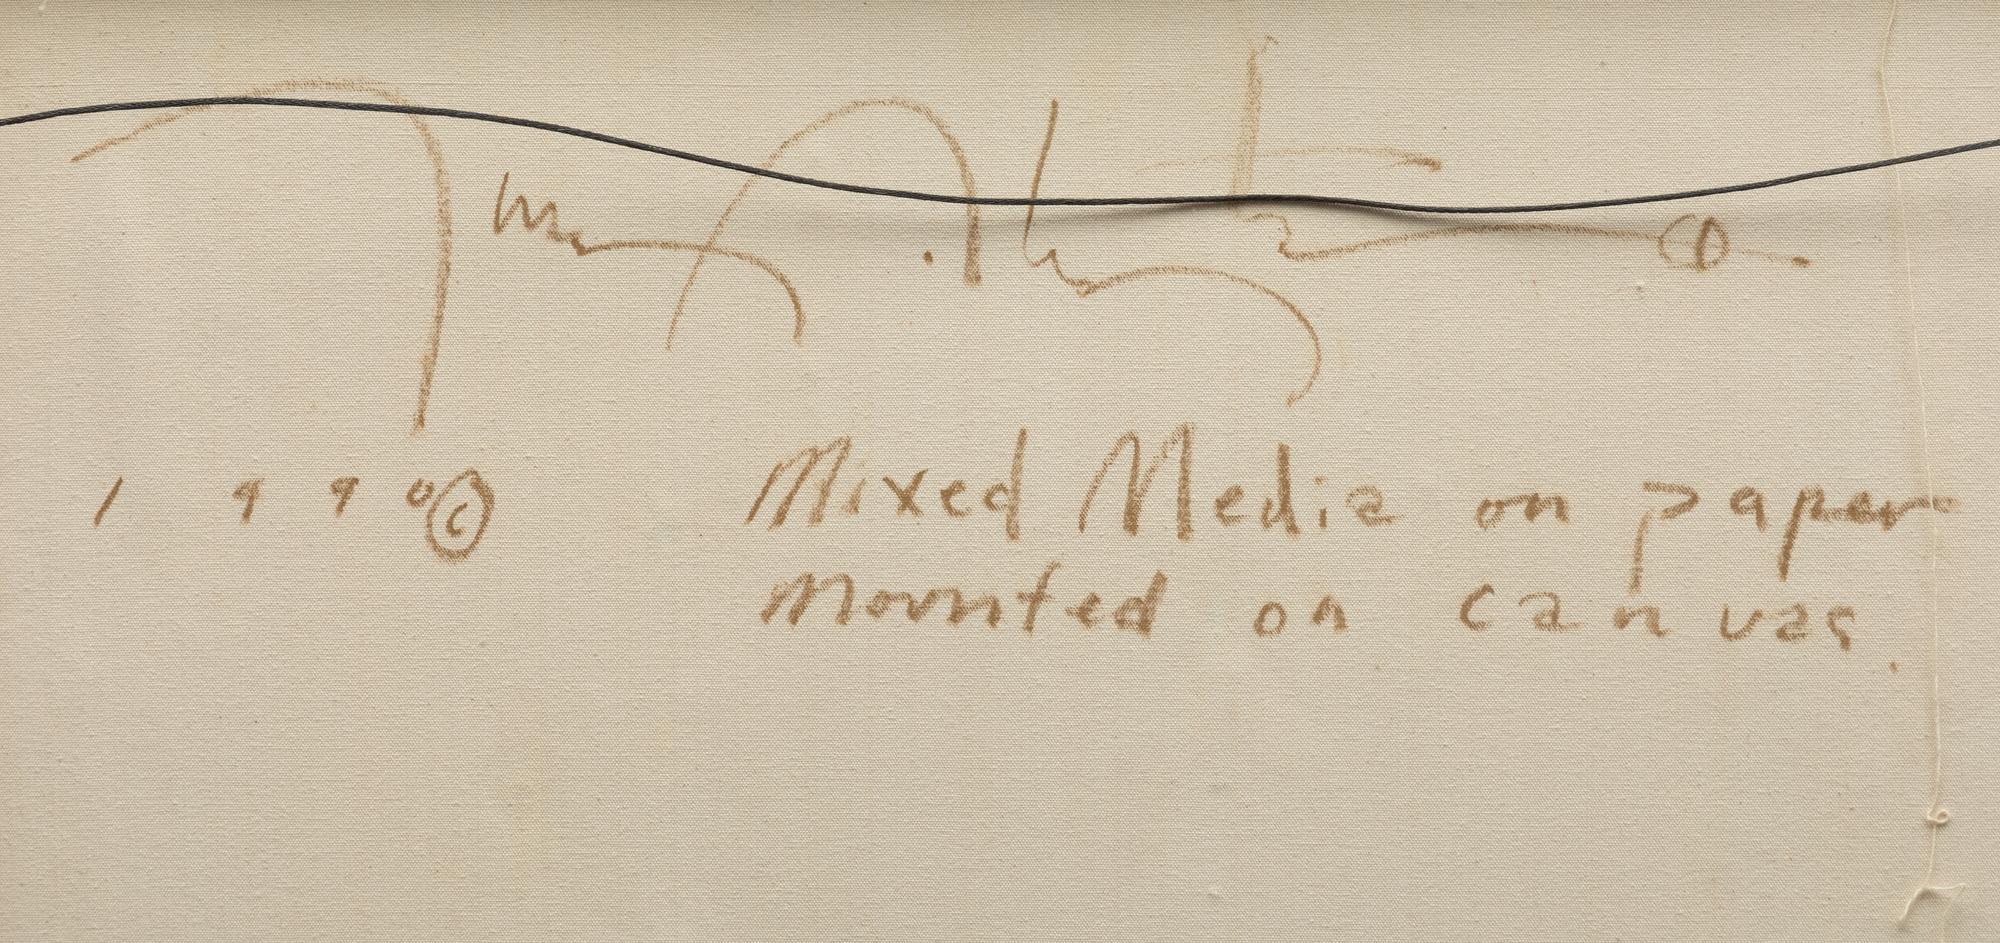 1990 © Mixed Media on paper
Mounted on canvas.